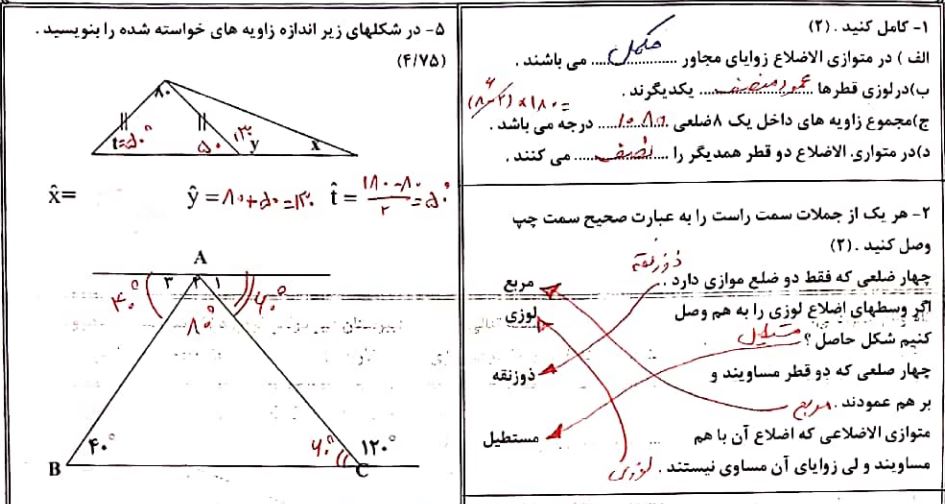 ۱- کامل کنید . (۲)
الف ) در متوازی الاضلاع زوایای مجاور ...مکمل... می باشند .
ب)درلوزی قطرها ...عمودمنصف... یکدیگرند .
= ۱۸۰ × (۸-۲)
ج)مجموع زاویه های داخل یک ۸ضلعی ...۱۰۸۰... درجه می باشد .
د)در متوازی الاضلاع دو قطر همدیگر را ...نصف... می کنند .
۲- هر یک از جملات سمت راست را به عبارت صحیح سمت چپ
وصل کنید . (۲)
ذوزنقه
چهار ضلعی که فقط دو ضلع موازی دارد .
مربع
اگر وسطهای اضلاع لوزی را به هم وصل
لوزی
کنیم شکل حاصل ؟ مستطیل
چهار ضلعی که دو قطر مساویند و
ذوزنقه
بر هم عمودند . مربع
متوازی الاضلاعی که اضلاع آن با هم
مستطیل
مساویند و لی زوایای آن مساوی نیستند . لوزی
۵- در شکلهای زیر اندازه زاویه های خواسته شده را بنویسید .
(۴/۷۵)
۸۰
t=۵۰° ۵۰ ۱۳۰ y x
x̂= ŷ =۸۰+۵۰=۱۳۰ t̂ = ۱۸۰-۸۰/۲ =۵۰°
A
۴۰° ۳ ۲ ۱ ۶۰°
۸۰°
۴۰° ۶۰° ۱۲۰°
B C